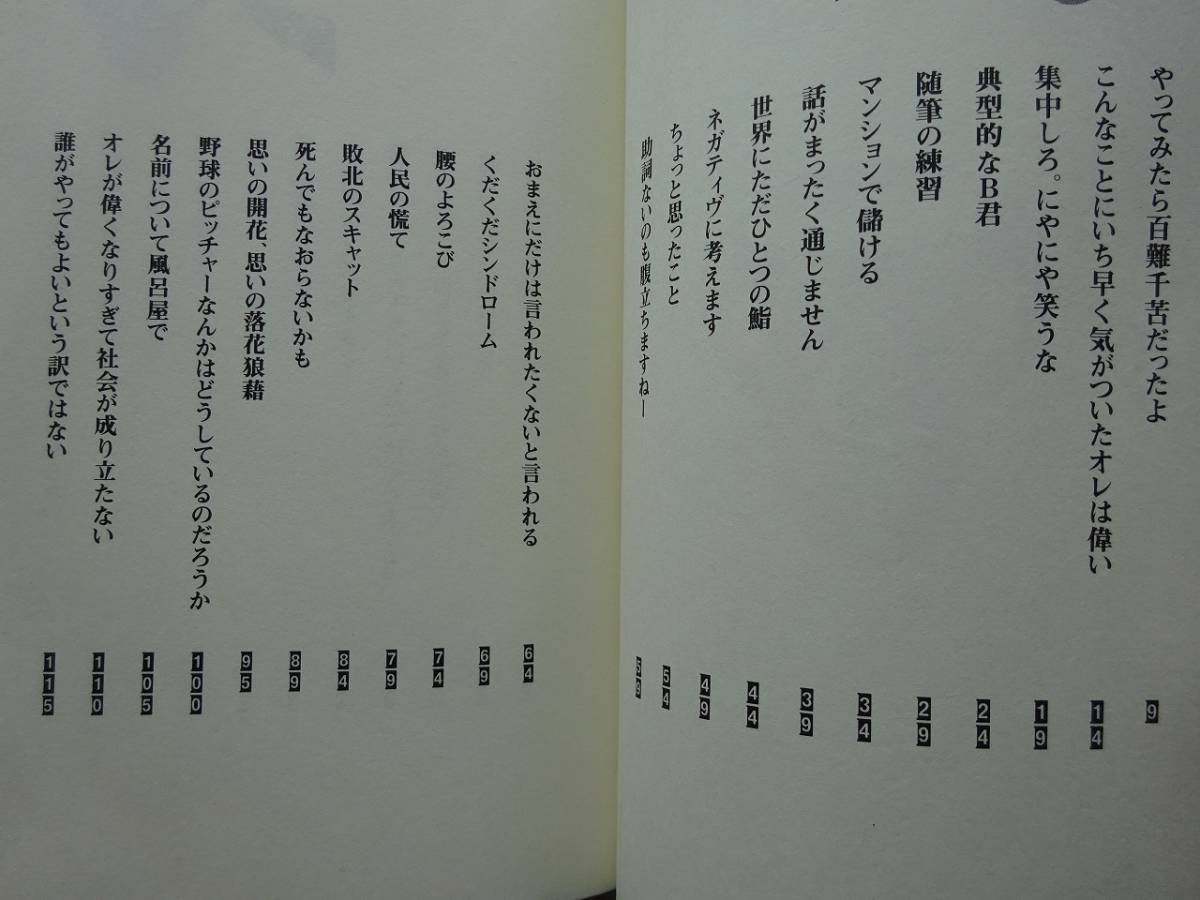 やってみたら百難千苦だったよ 9
こんなことにいち早く気がついたオレは偉い 14
集中しろ。にやにや笑うな 19
典型的なB君 24
随筆の練習 29
マンションで儲ける 34
話がまったく通じません 39
世界にただひとつの鮨 44
ネガティヴに考えます 49
ちょっと思ったこと 54
助詞ないのも腹立ちますねー 59
おまえにだけは言われたくないと言われる 64
くだくだシンドローム 69
腰のよろこび 74
人民の慌て 79
敗北のスキャット 84
死んでもなおらないかも 89
思いの開花、思いの落花狼藉 95
野球のピッチャーなんかはどうしているのだろうか 100
名前について風呂屋で 105
オレが偉くなりすぎて社会が成り立たない 110
誰がやってもよいという訳ではない 115